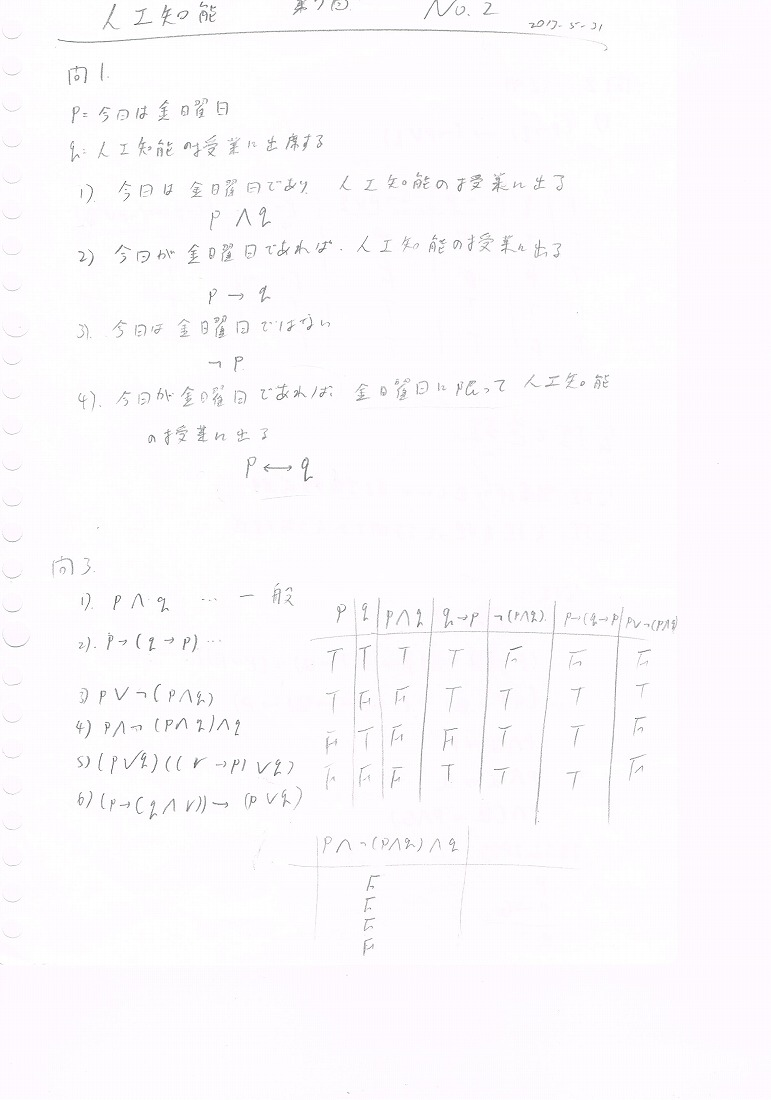 人工知能 第7回 No.2 2017-5-31
問1.
P= 今日は金曜日
q= 人工知能の授業に出席する
1) 今日は金曜日であり 人工知能の授業に出る
P ∧ q
2) 今日が金曜日であれば、人工知能の授業に出る
P → q
3). 今日は金曜日ではない
¬ P
4). 今日が金曜日であれば、金曜日に限って人工知能
の授業に出る
P ↔ q
問3.
1). P ∧ q … 一般
2). P→(q→P)…
3) P∨¬(P∧q)
4) P∧¬(P∧q)∧q
5) (P∨q)((r→P)∨q)
6) (P→(q∧r))→(P∨q)
P q P∧q q→P ¬(P∧q). P→(q→P P∨¬(P∧q)
T T T T F F F
T F F T T T T
F T F F T T F
F F F T T T F
P∧¬(P∧q)∧q
F
F
F
F